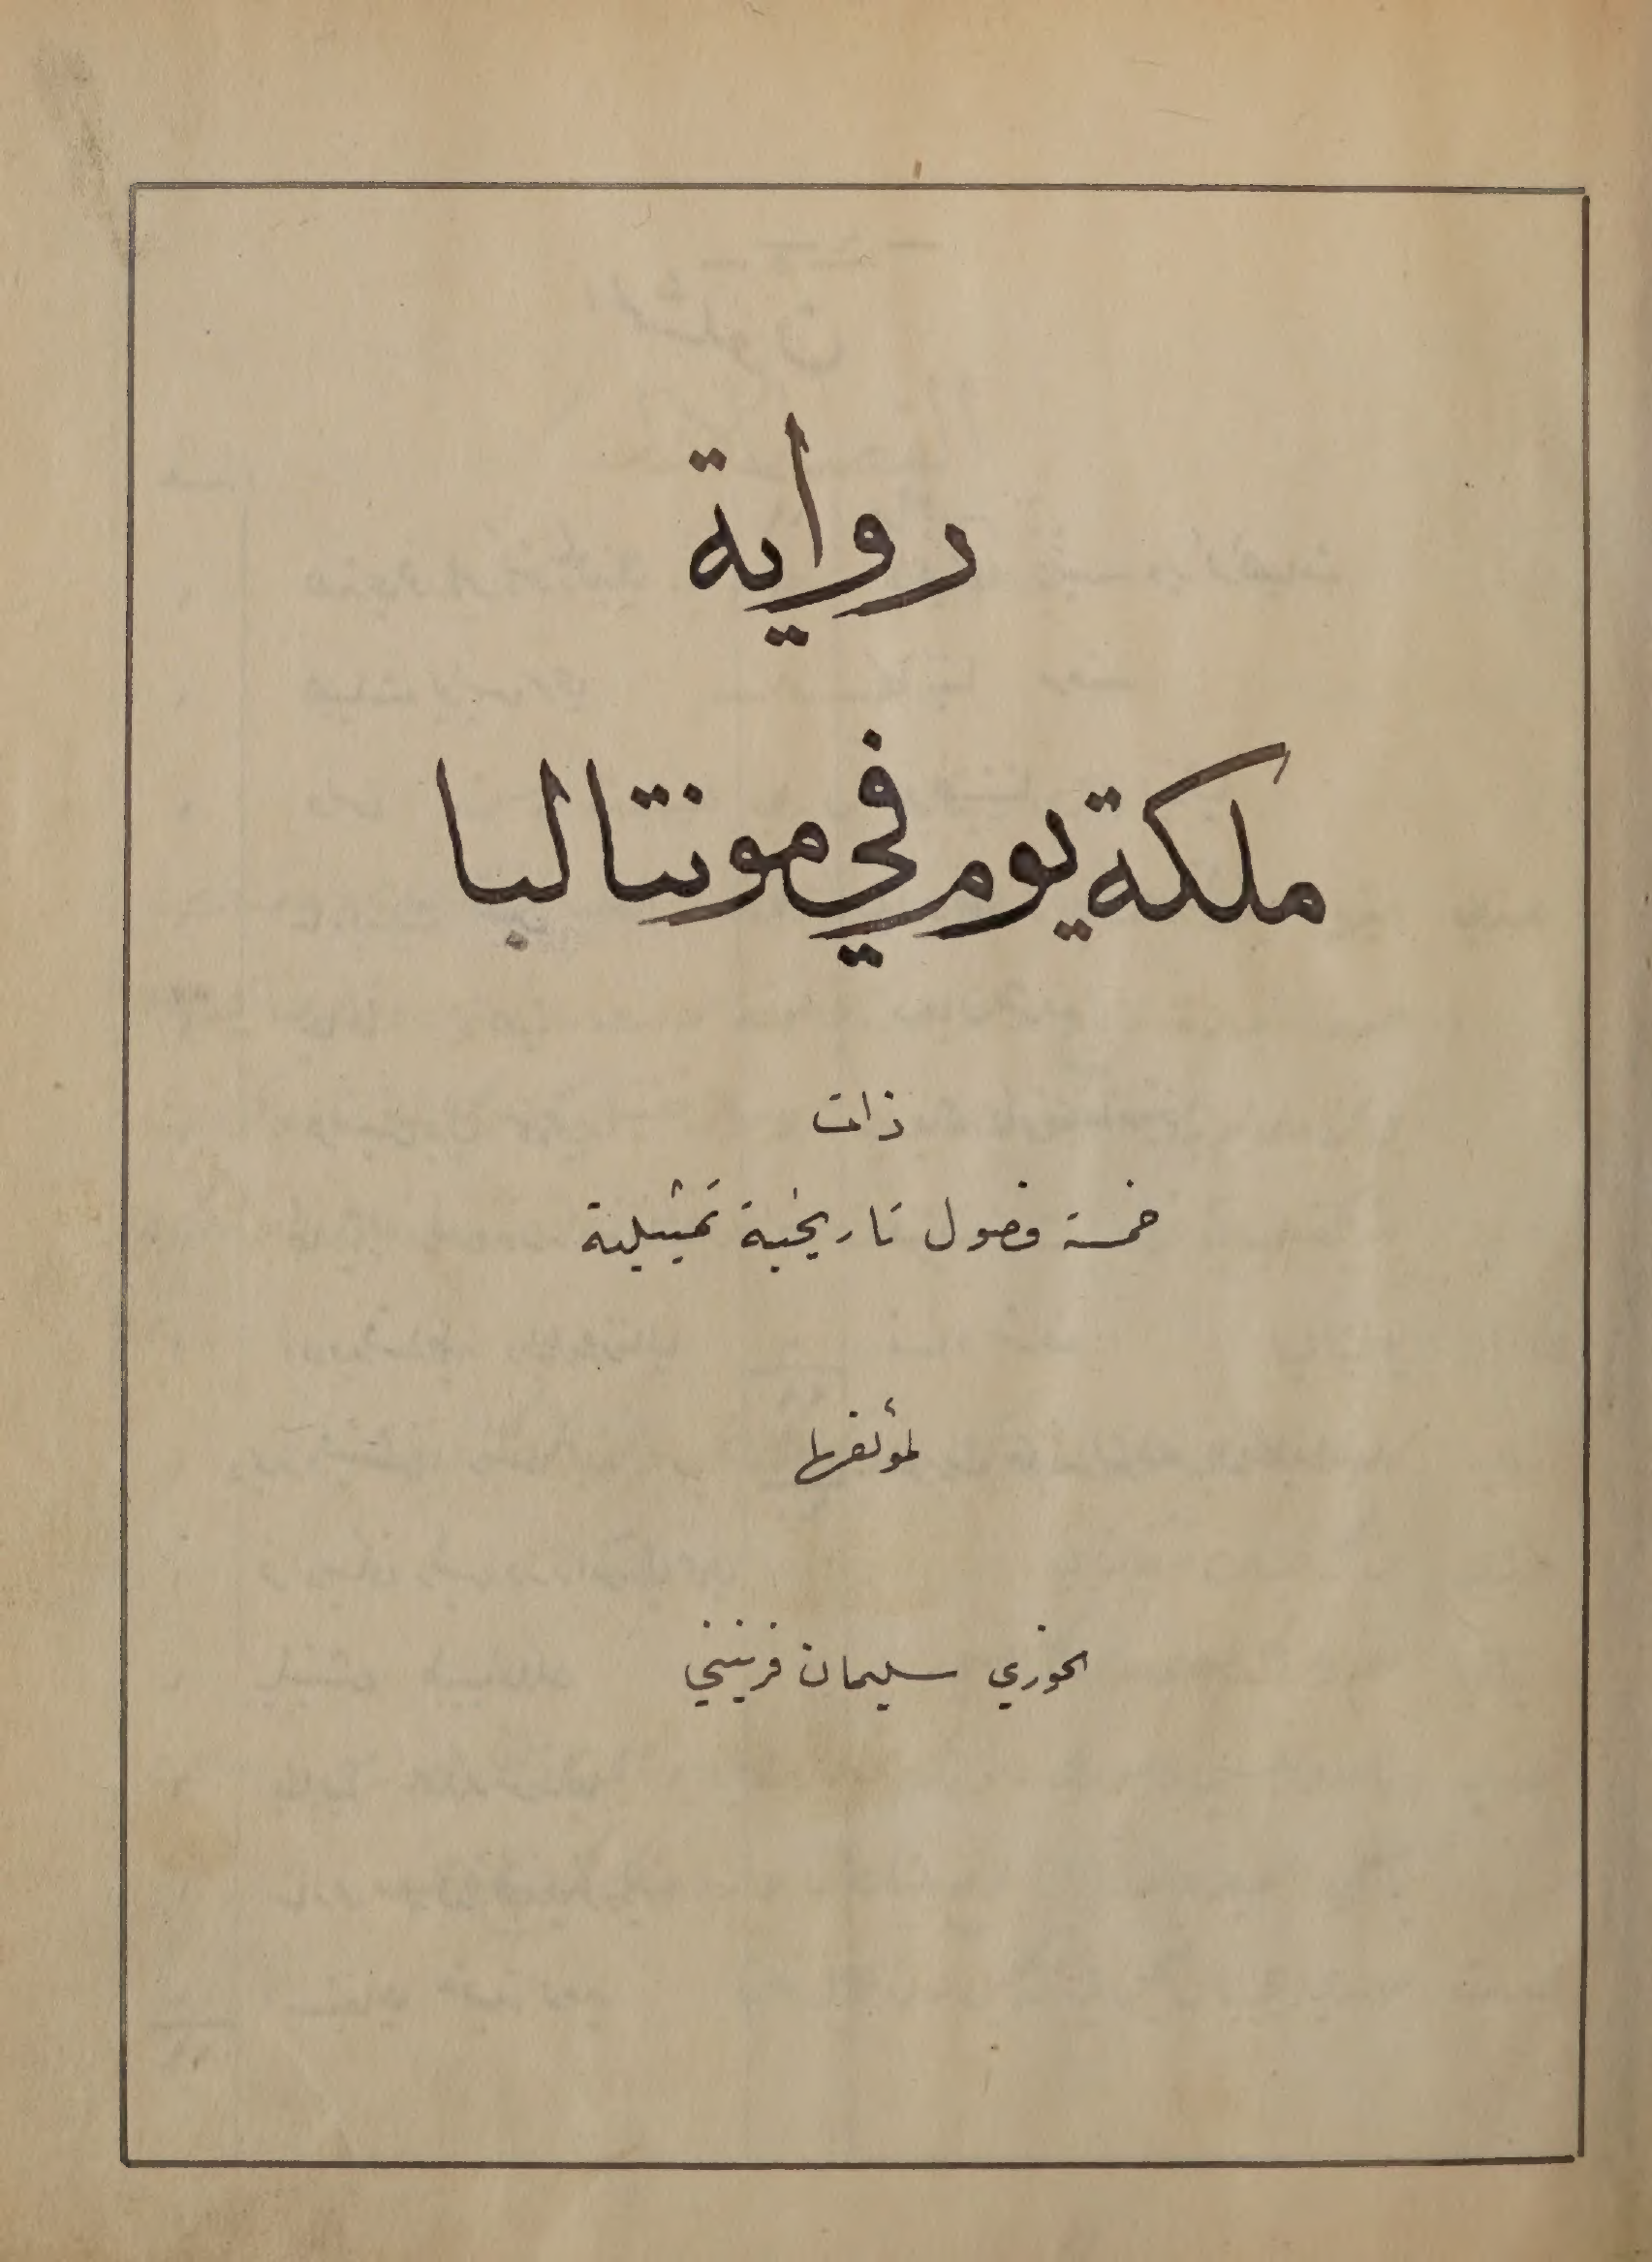 رواية
ملكة يوم في مونتالبا
ذات
خمسة فصول تاريخية تمثيلية
لمؤلفها
الخوري سليمان فرينيني